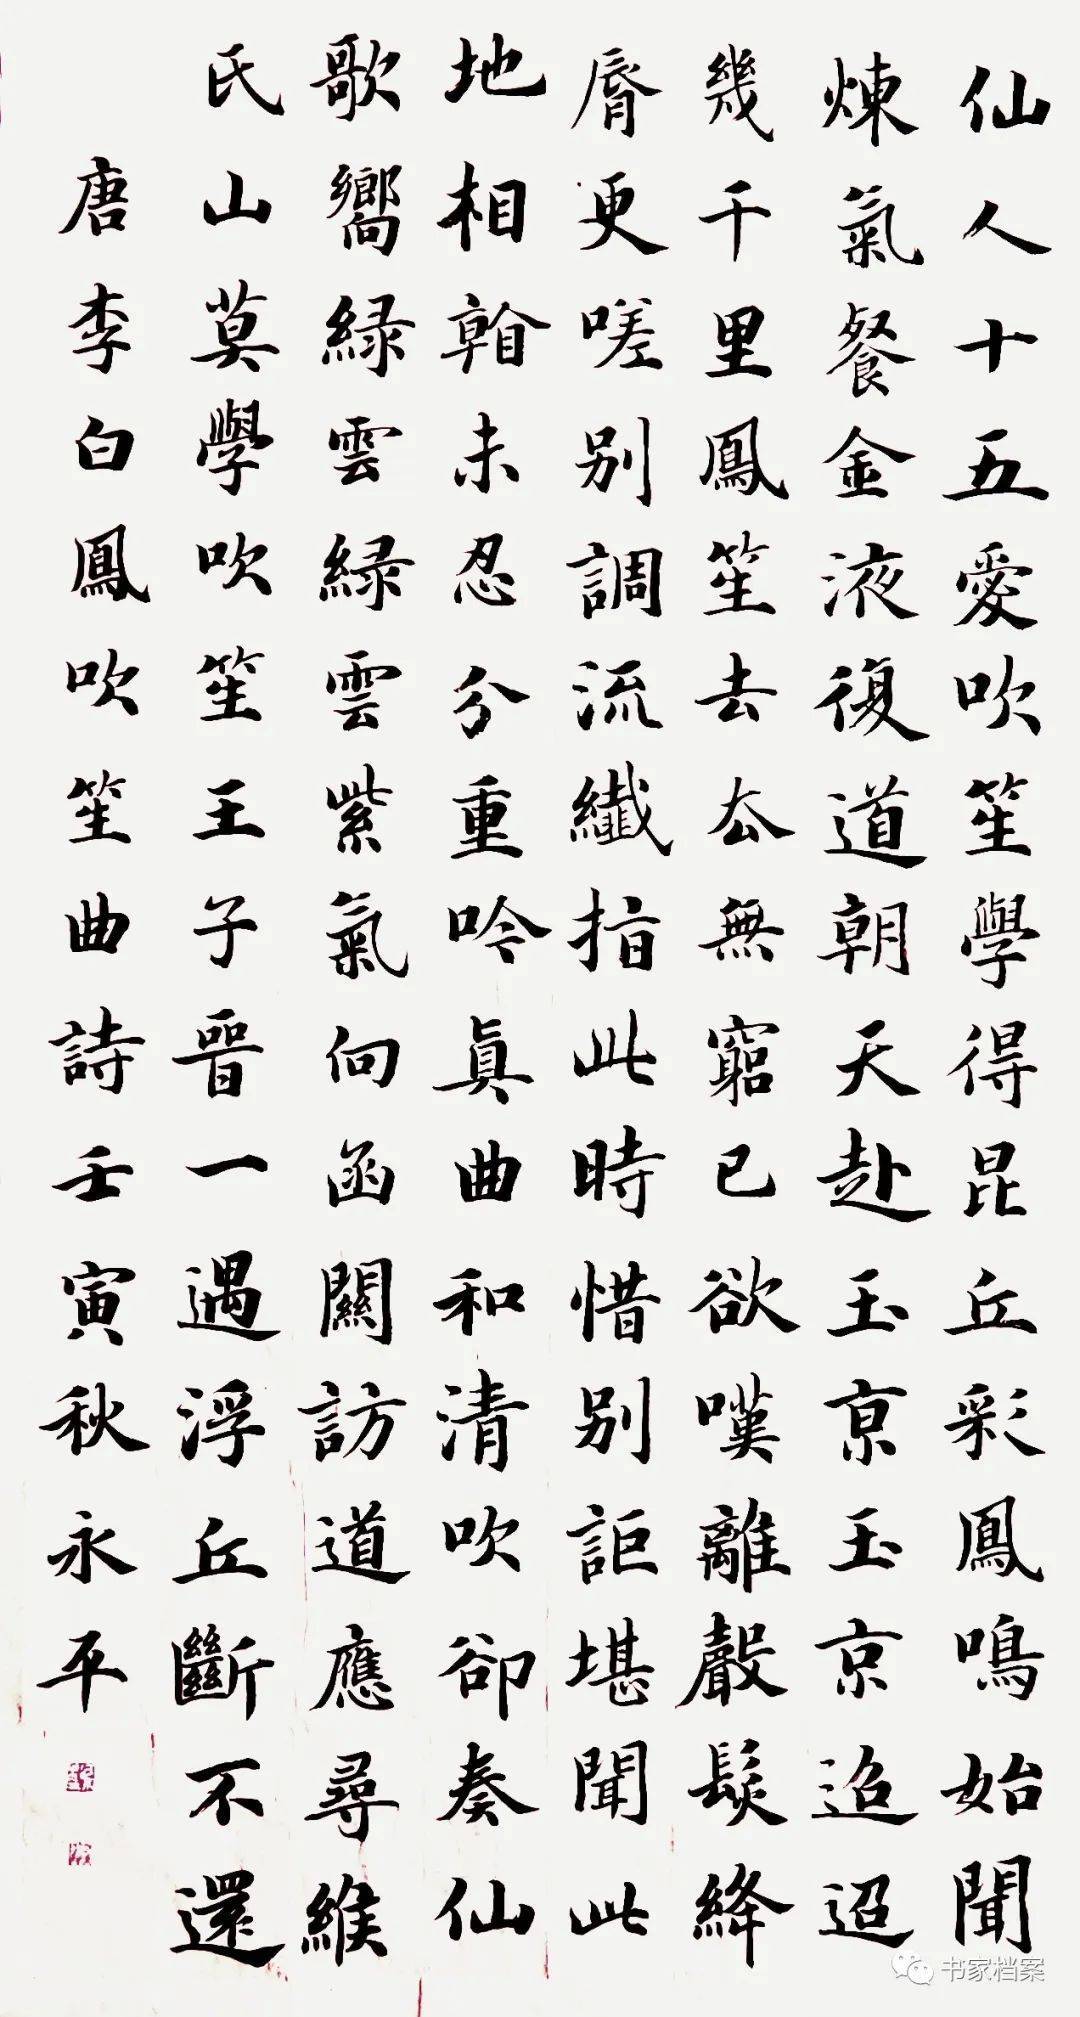 仙人十五愛吹笙學得昆丘彩鳳鳴始聞
煉氣餐金液復道朝天赴玉京玉京迢迢
幾千里鳳笙去去無窮已欲嘆離聲髮絳
脣更嗟別調流纖指此時惜別詎堪聞此
地相看未忍分重吟眞曲和清吹卻奏仙
歌嚮綠雲綠雲紫氣向函關訪道應尋緱
氏山莫學吹笙王子晉一遇浮丘斷不還
唐李白鳳吹笙曲詩壬寅秋永平
书家档案